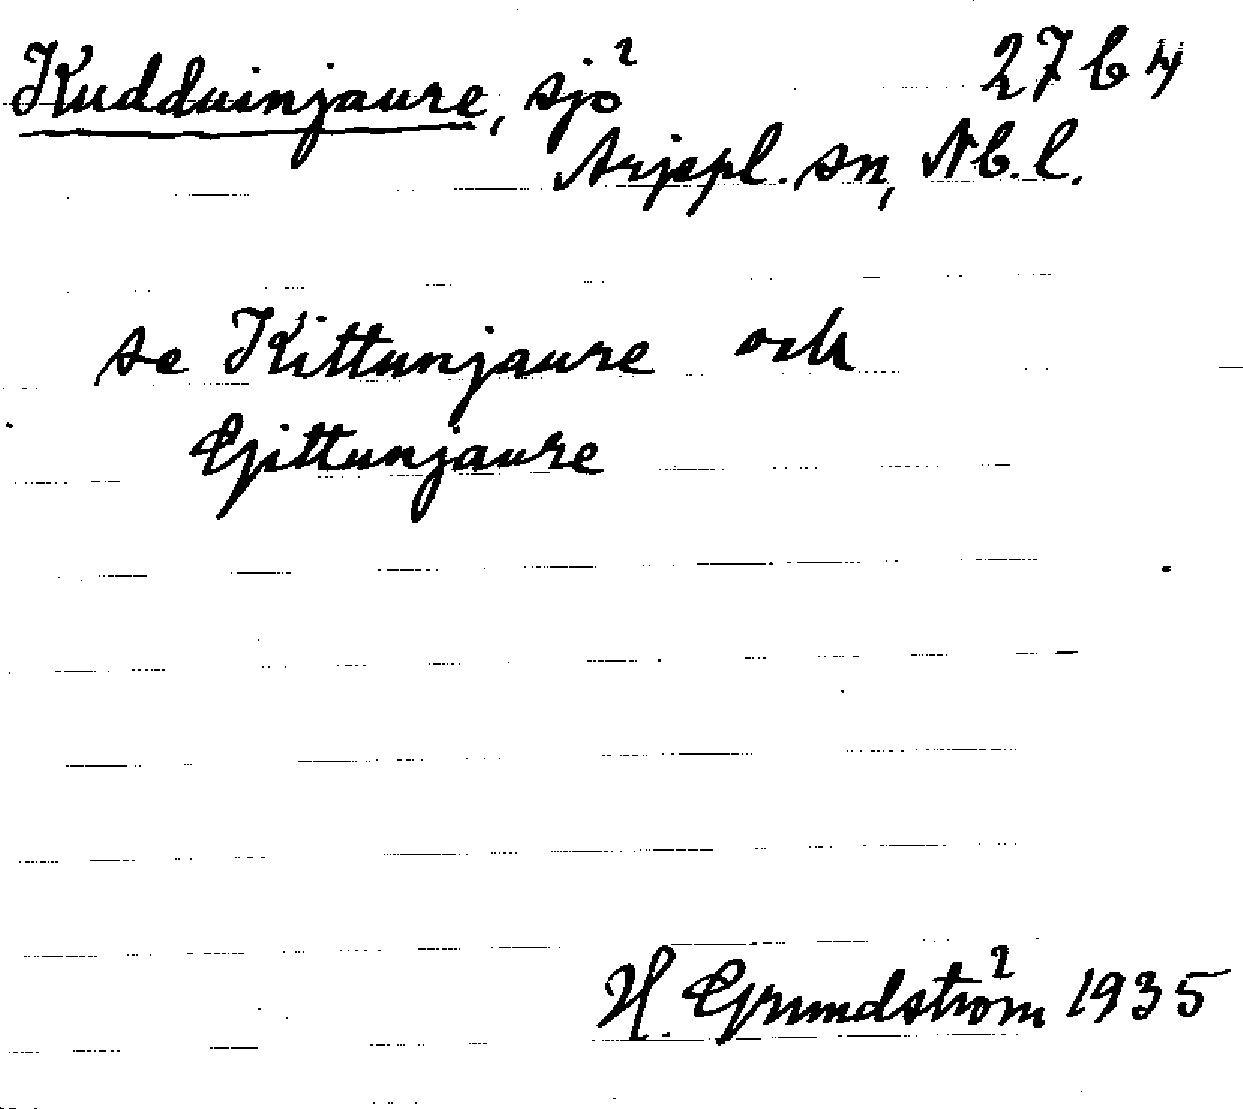 Kudduinjaure, sjö 27 b 4
Arjepl. sn, Nb. l.
se Kittunjaure och
Gjittunjaure
H. Grundström 1935